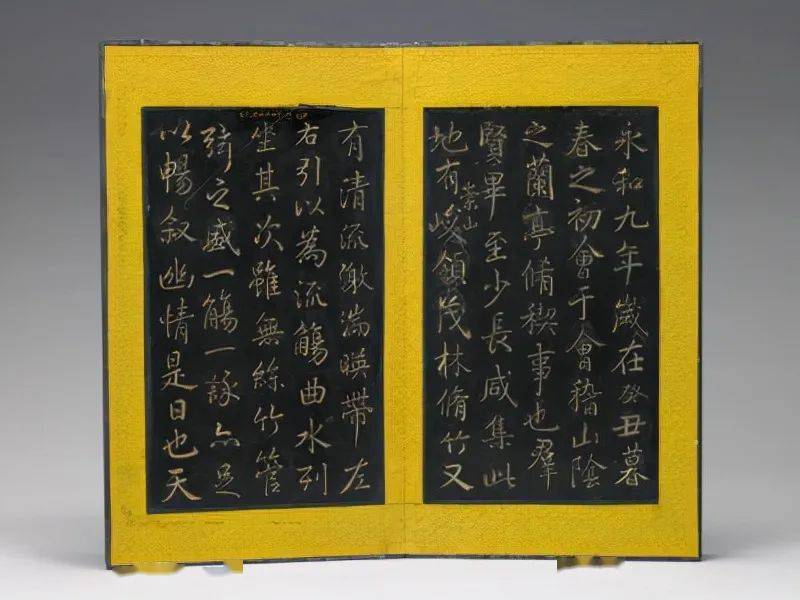 永和九年歲在癸丑暮
春之初會于會稽山陰
之蘭亭脩稧事也羣
賢畢至少長咸集此
地有崇山峻領茂林脩竹又
有清流激湍暎帶左
右引以為流觴曲水列
坐其次雖無絲竹管
弦之盛一觴一詠亦足
以暢叙幽情是日也天